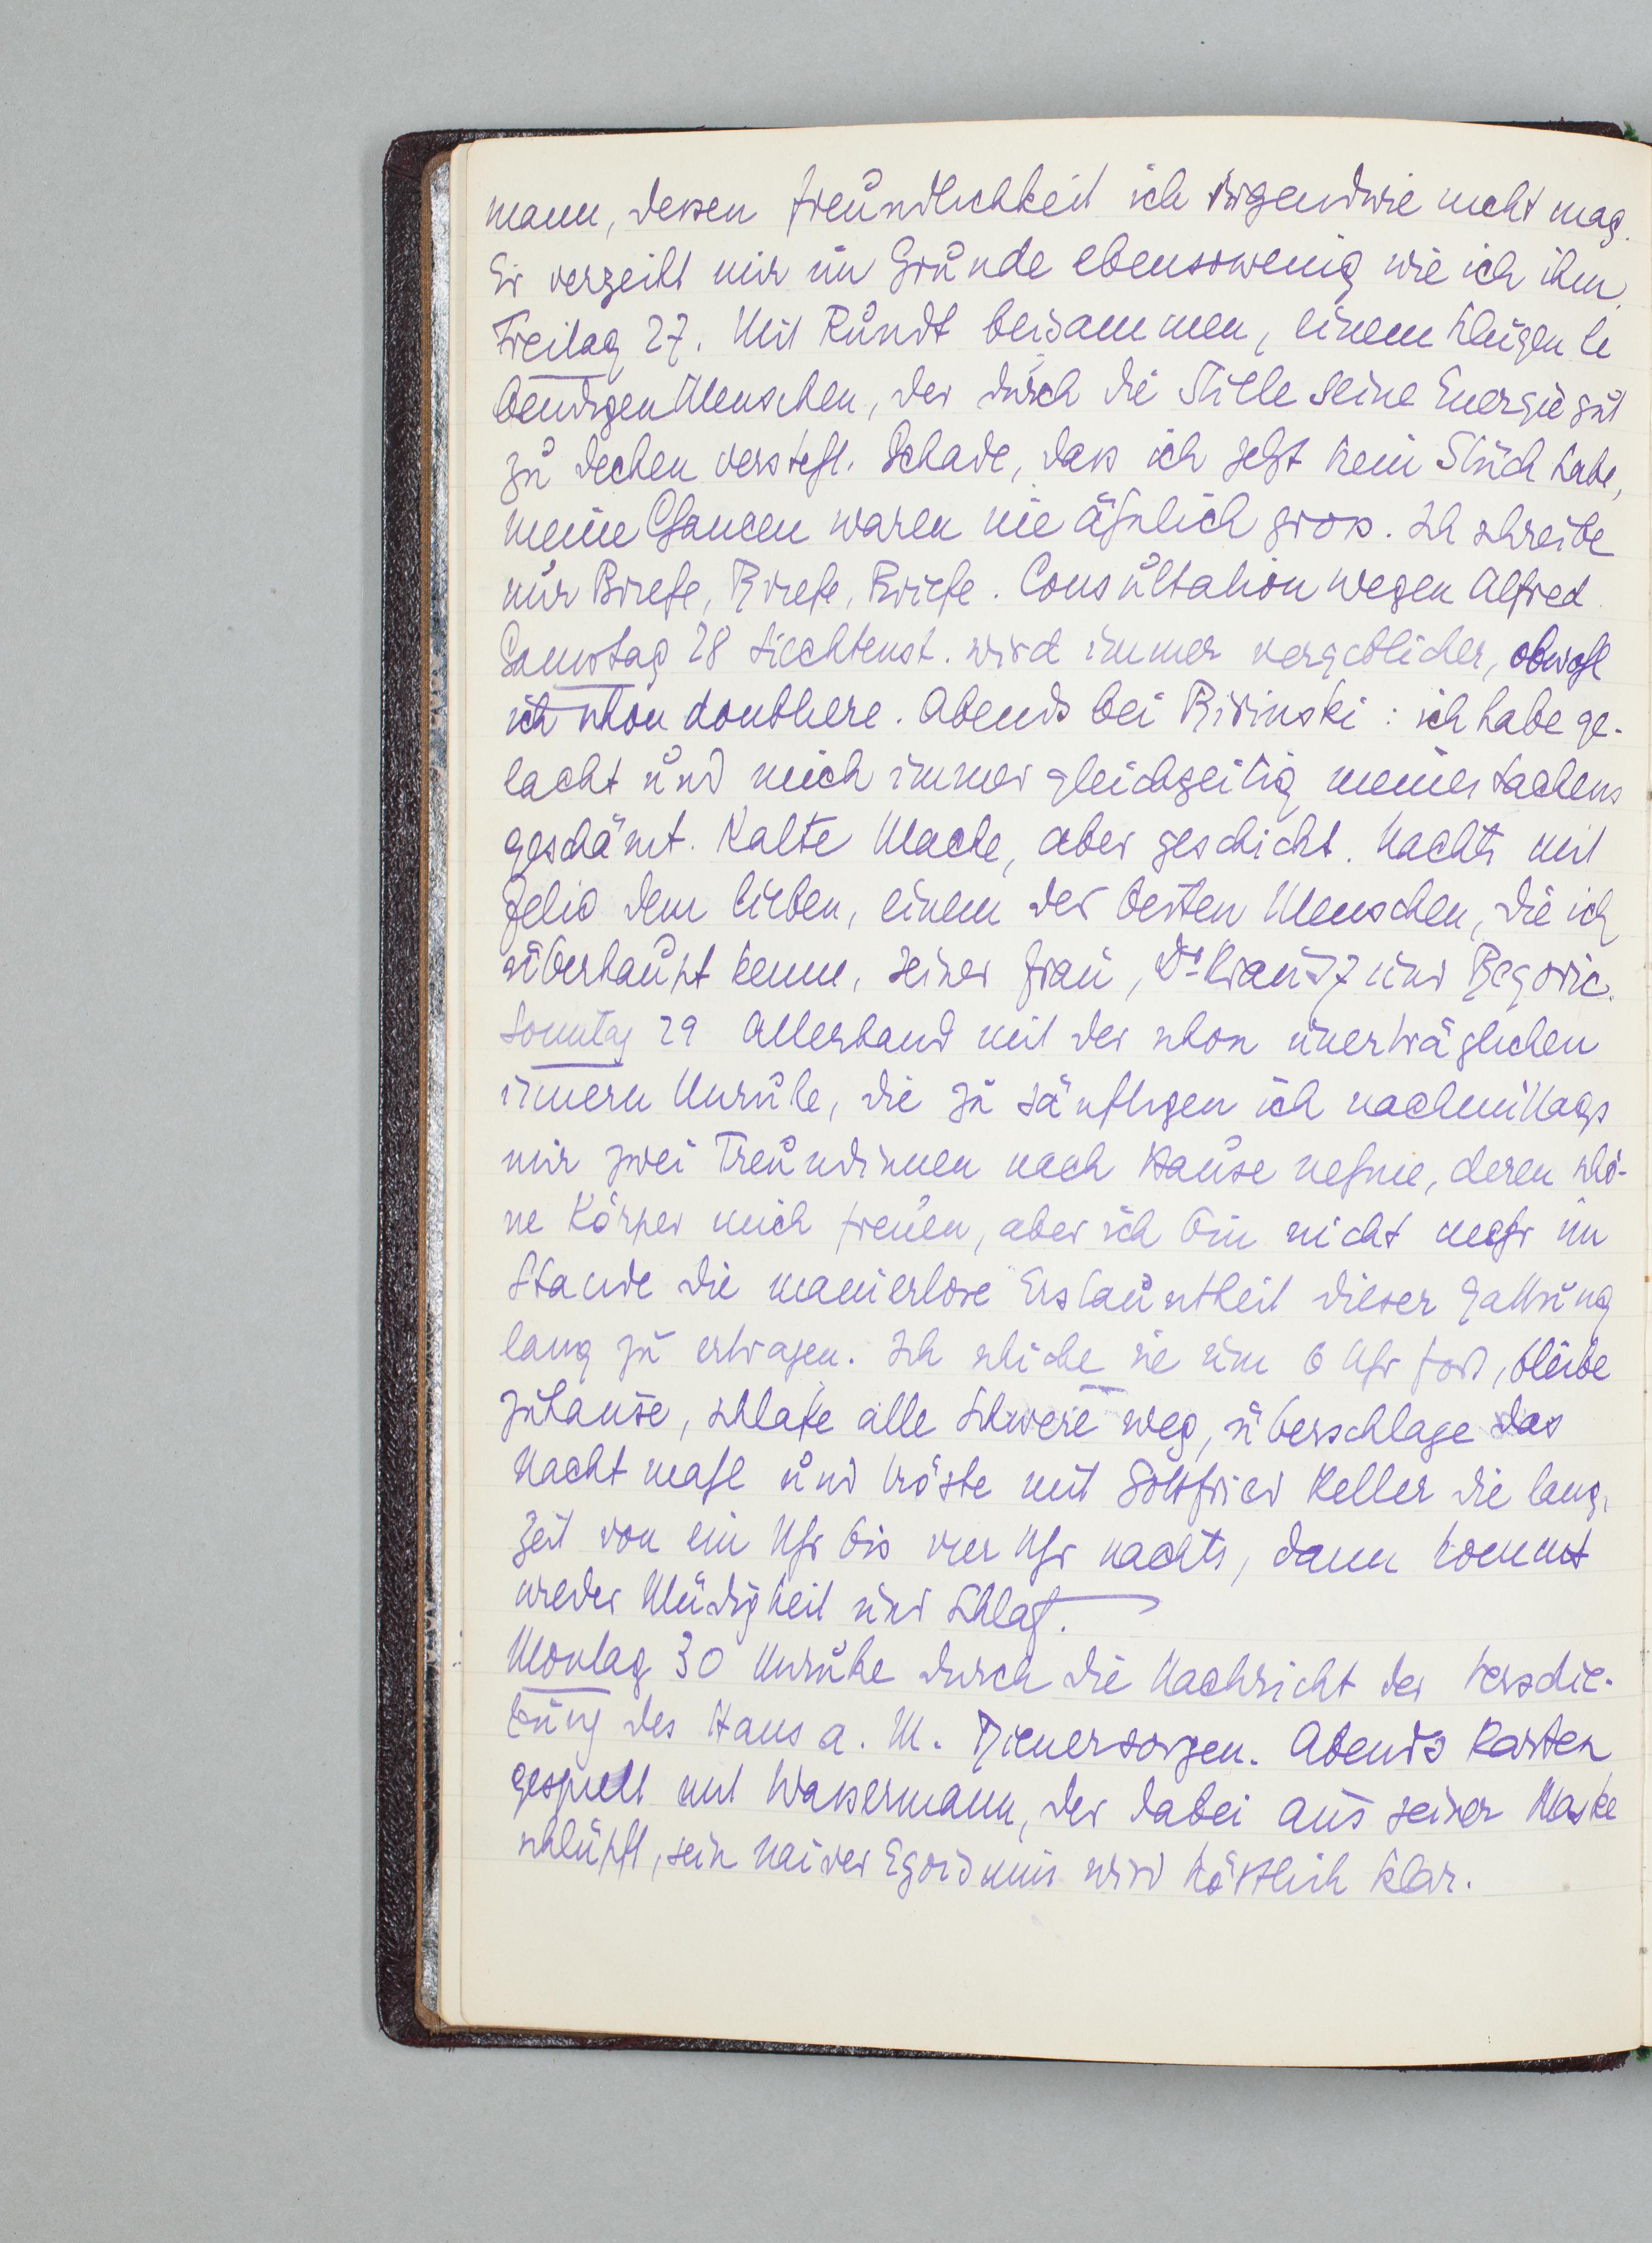 mann, dessen Freundlichkeit ich irgendwie nicht mag.
Er verzeiht mir im Grunde ebensowenig wie ich ihm.
Freitag 27. Mit Rundt beisammen, einem klugen le
bendigen Menschen, der durch die Stille seine Energie gut
zu decken versteht. Schade, dass ich jetzt kein Stück habe,
meine Chancen waren nie ähnlich gross. Ich schreibe
nur Briefe, Briefe, Briefe. Consultation wegen Alfred.
Samstag 28 Liechtenst. wird immer vergeblicher, obwohl
ich schon doubliere. Abends bei : ich habe ge-
lacht und mich immer gleichzeitig meines Lachens
geschämt. Kalte Mache, aber geschickt. Nachts mit
dem lieben, einem der besten Menschen, die ich
überhaupt kenne, seiner Frau, Dr und Begovic.
Sonntag 29 Allerhand mit der schon unerträglichen
innern Unruhe, die zu sänftigen ich nachmittags
mir zwei Freundinnen nach Hause nehme, deren schö-
ne Körper mich freuen, aber ich bin nicht mehr im
Stande die manierlose dieser Gattung
lang zu ertragen. Ich schicke sie um 6 Uhr fort, bleibe
zuhause, schlafe alle Schwere weg, überschlage das
Nachtmahl und tröste mit Gottfried Keller die lang.
Zeit von ein Uhr bis vier Uhr nachts, dann kommt
wieder Müdigkeit und Schlaf.
Montag 30 Unruhe durch die Nachricht der Verschie-
bung des Haus a. M. Dienersorgen. Abends Karten
gespielt mit Wassermann, der dabei aus seiner Maske
schlüpft, sein naiver Egoismus wird köstlich klar.